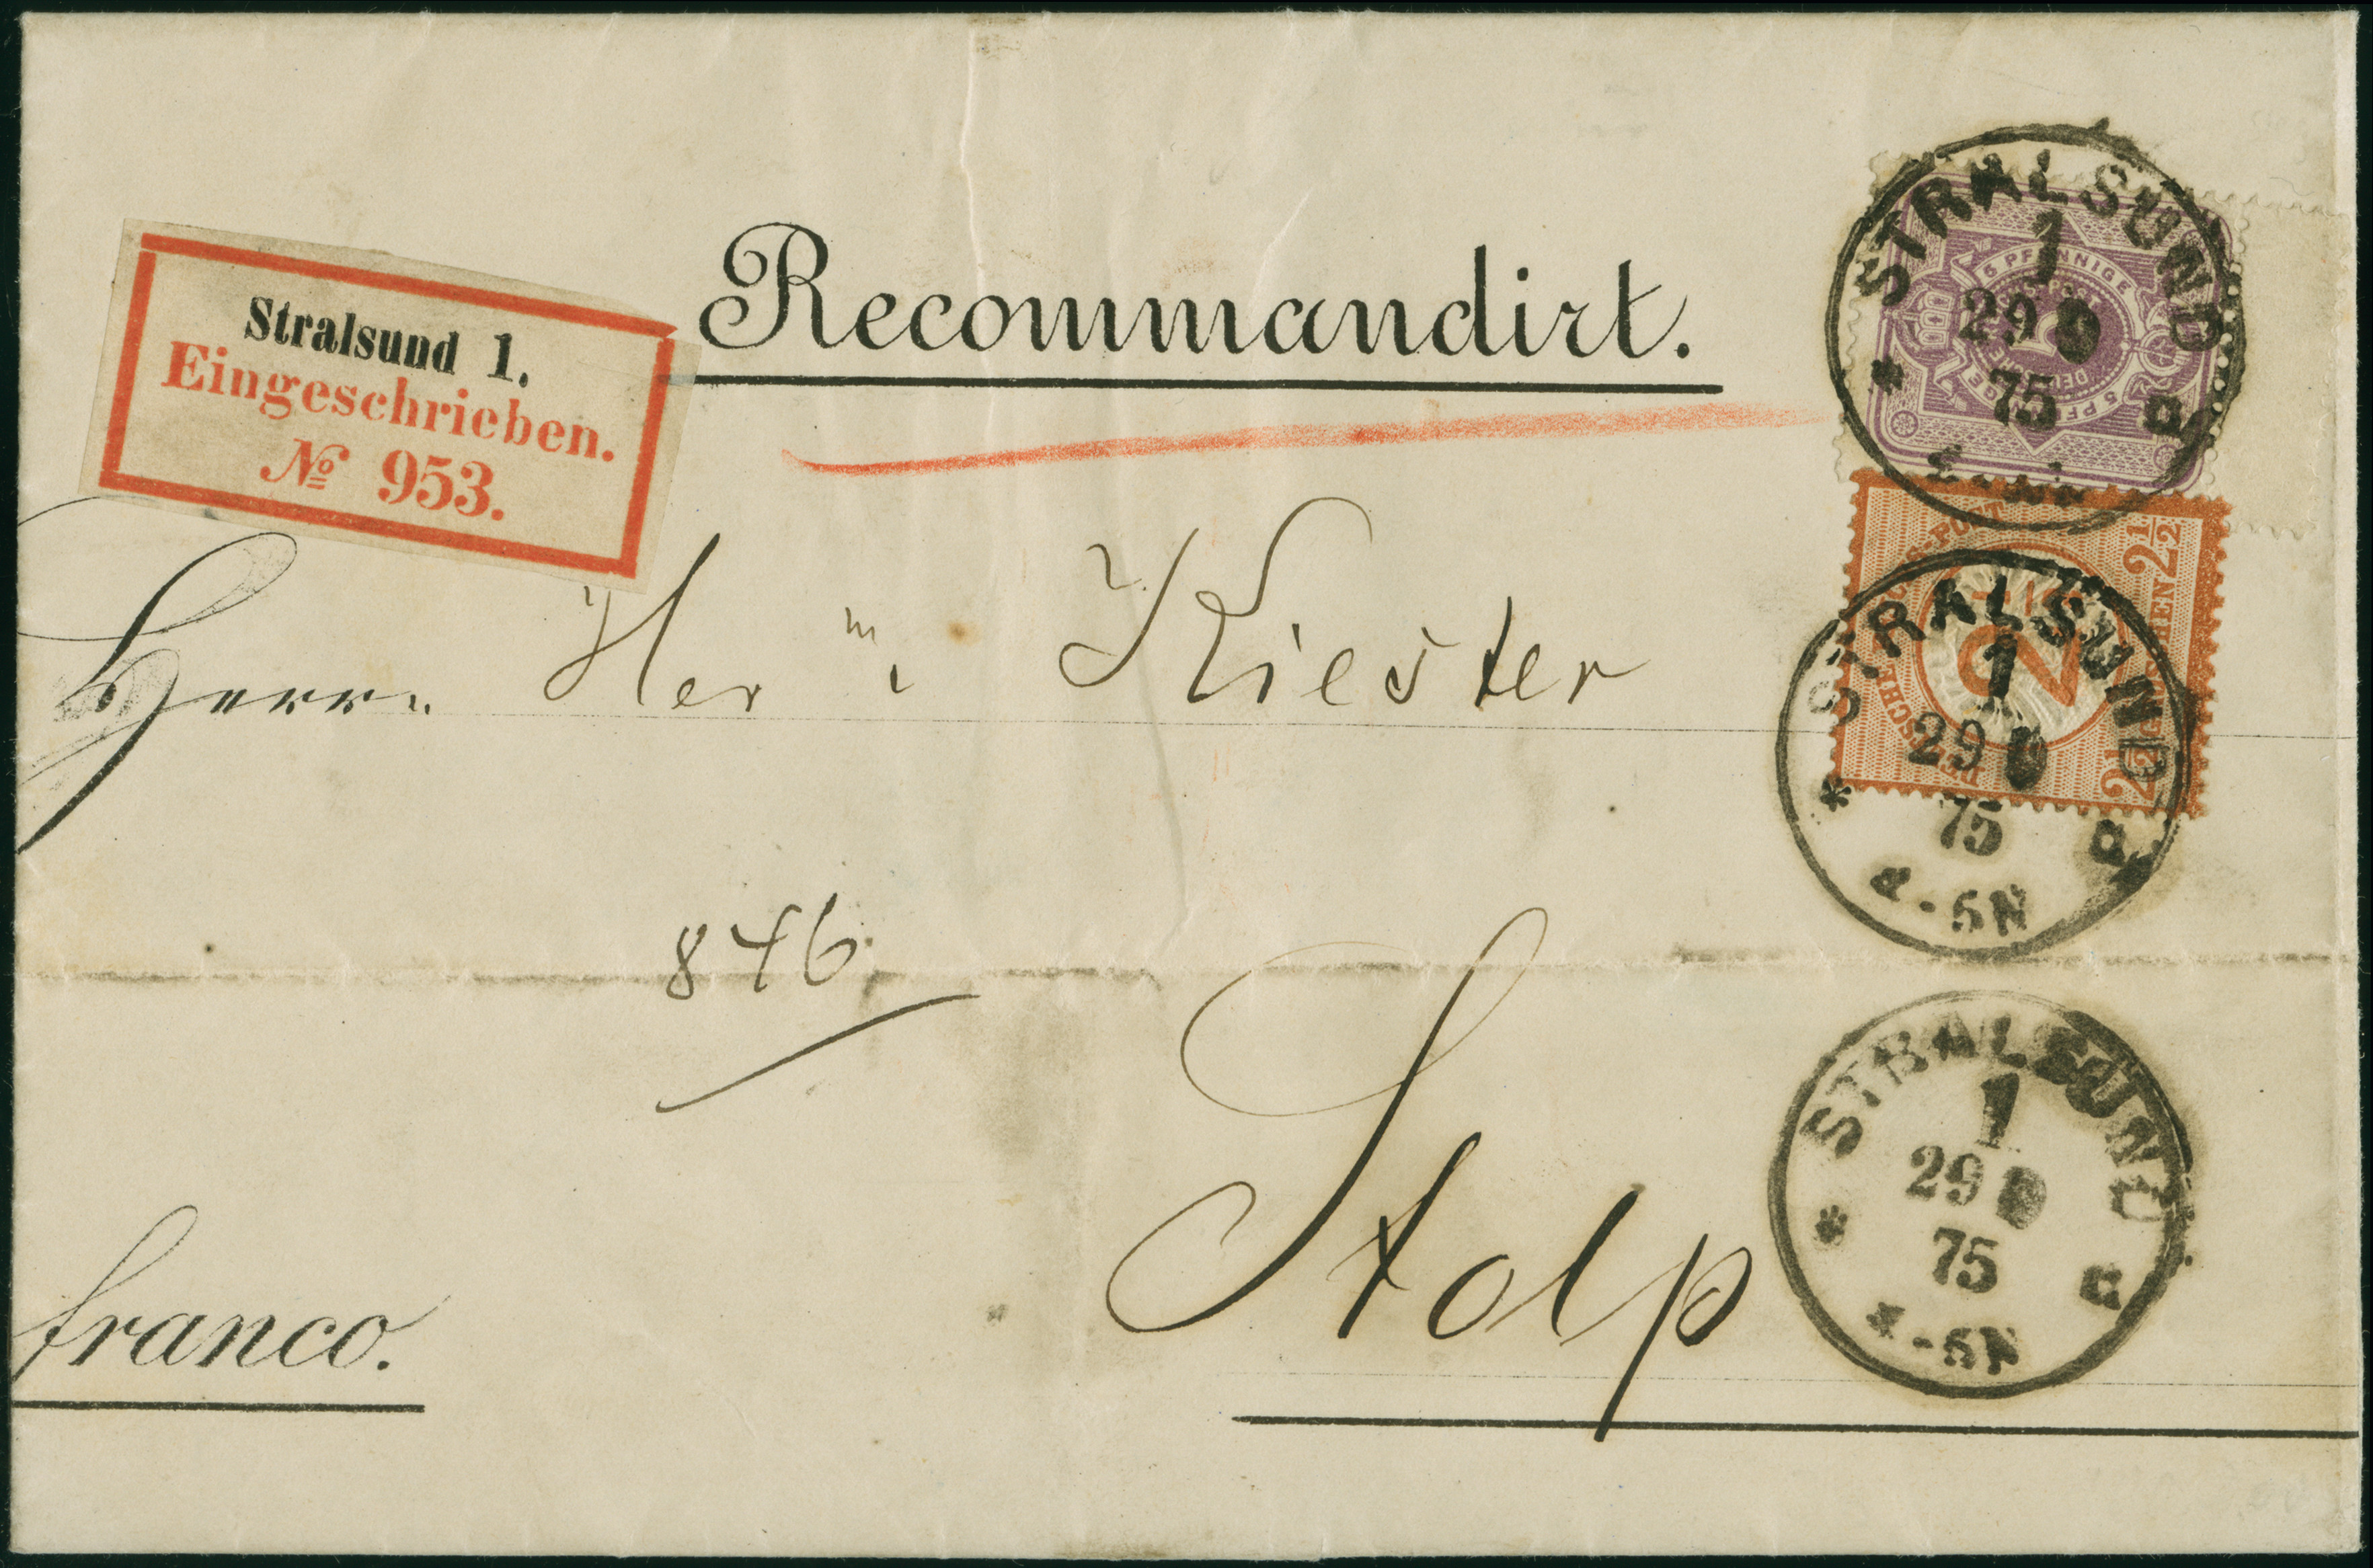 Stralsund 1.
Eingeschrieben.
№ 953.
Recommandirt.
Herrn Herm. Kiester
846
Stolp
franco.
STRALSUND
1
29 9
75
5 PFENNIGE
STRALSUND
1
29 9
75
4-5N
2½
2½
STRALSUND
1
29 9
75
4-5N